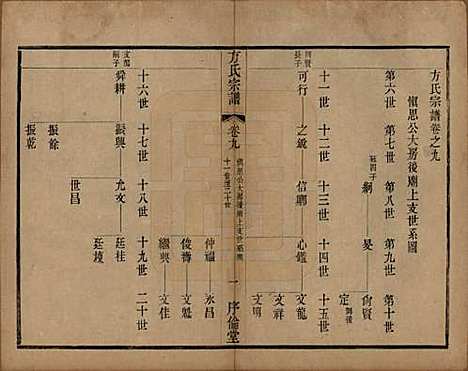 方氏宗譜卷之九
慎思公大房後廟上支世系圖
第六世 第七世 第八世 第九世 第十世
冠四子
綱 旻 尙賢 定
舞後
十一世 十二世 十三世 十四世 十五世
尙賢長子
可行 之鋭 信 心鑑 文龍
文祥
文明
方氏宗譜
卷九
慎思公大房後廟上支世系圖
十一世至二十世
一
序倫堂
仲福 永昌
俊膺 文魁
繼興 文佳
十六世 十七世 十八世 十九世 二十世
文龍嗣子
舜耕 振興 允文 廷桂
廷瓊
世昌
振餘
振乾